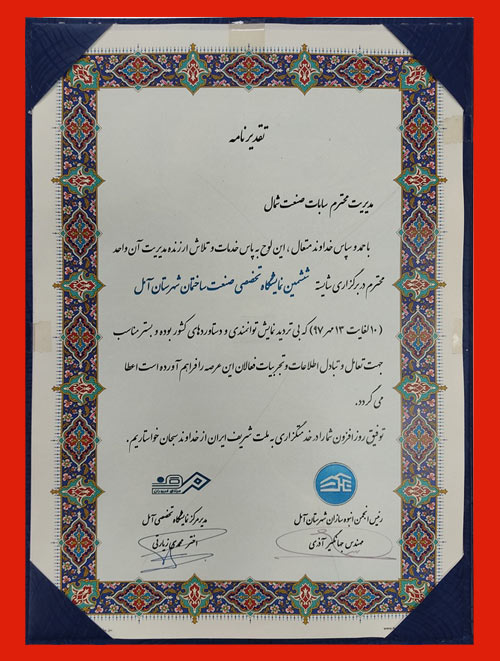 تقدیرنامه
مدیریت محترم سابات صنعت شمال
با حمد و سپاس خداوند متعال ، این لوح به پاس خدمات و تلاش ارزنده مدیریت آن واحد
محترم در برگزاری شایسته ششمین نمایشگاه تخصصی صنعت ساختمان شهرستان آمل
(۱۰ لغایت ۱۳ مهر ۹۷) که بی تردید نمایش توانمندی و دستاوردهای کشور بوده و بستر مناسب
جهت تعامل و تبادل اطلاعات و تجربیات فعالان این عرصه را فراهم آورده است اعطا
می گردد.
توفیق روزافزون شما را در خدمتگزاری به ملت شریف ایران از خداوند سبحان خواستاریم.
رئیس انجمن انبوه سازان شهرستان آمل
مهندس جهانگیر آذری
مدیر مرکز نمایشگاه تخصصی آمل
محمدی زیارانی